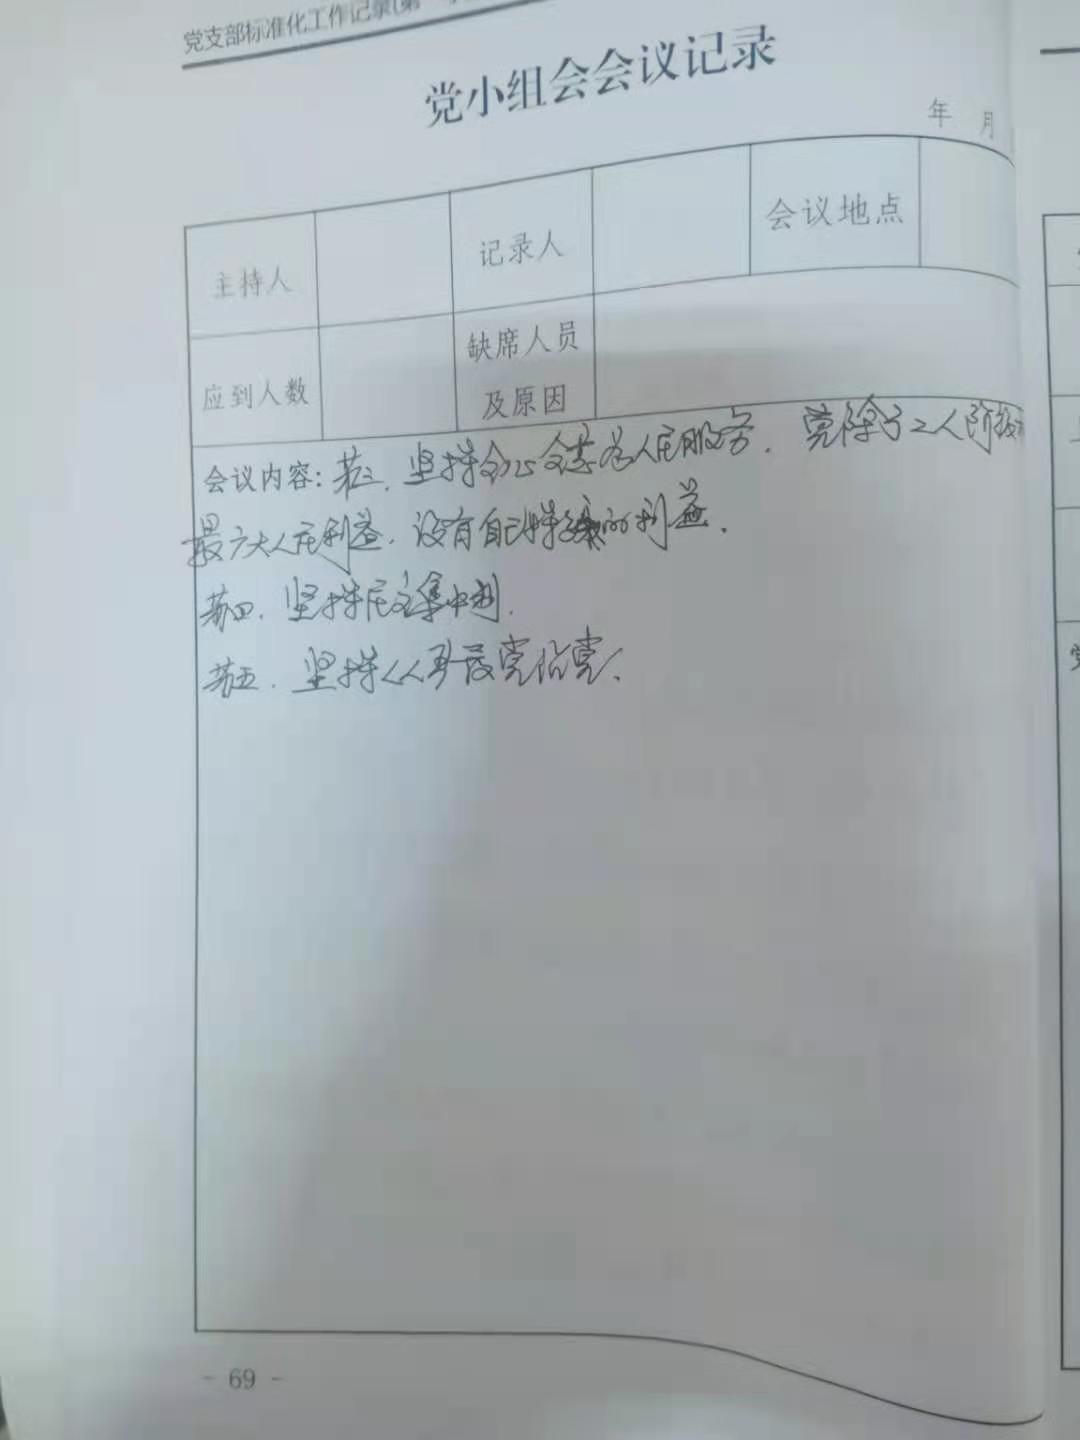 党支部标准化工作记录(第一
党小组会会议记录
年 月
主持人 记录人 会议地点
应到人数 缺席人员及原因
会议内容: 第三、坚持全心全意为人民服务. 党除了工人阶级和
最广大人民利益, 没有自己特殊的利益.
第四、坚持民主集中制.
第五、坚持从严管党治党.
- 69 -